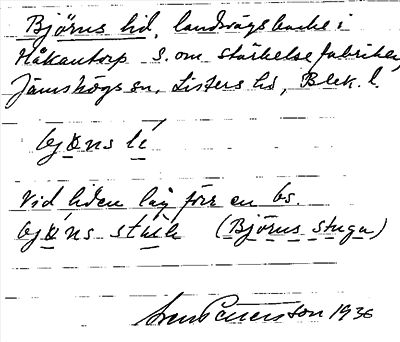 Björns lid, landsvägsbacke i
Håkantorp S. om stärkelsefabriken,
Jämshögs sn, Listers hd, Blek. l.
bjöns li
Vid liden låg förr en bs.
bjöns (Björns stuga)
1936